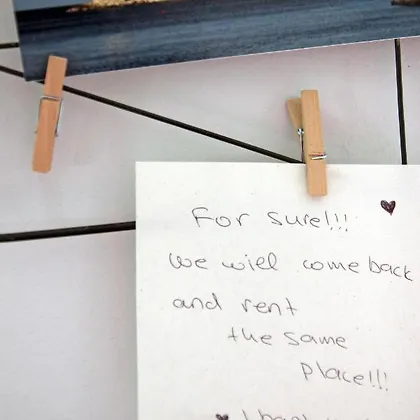 For sure!!!
we will come back
and rent
the same
place!!!